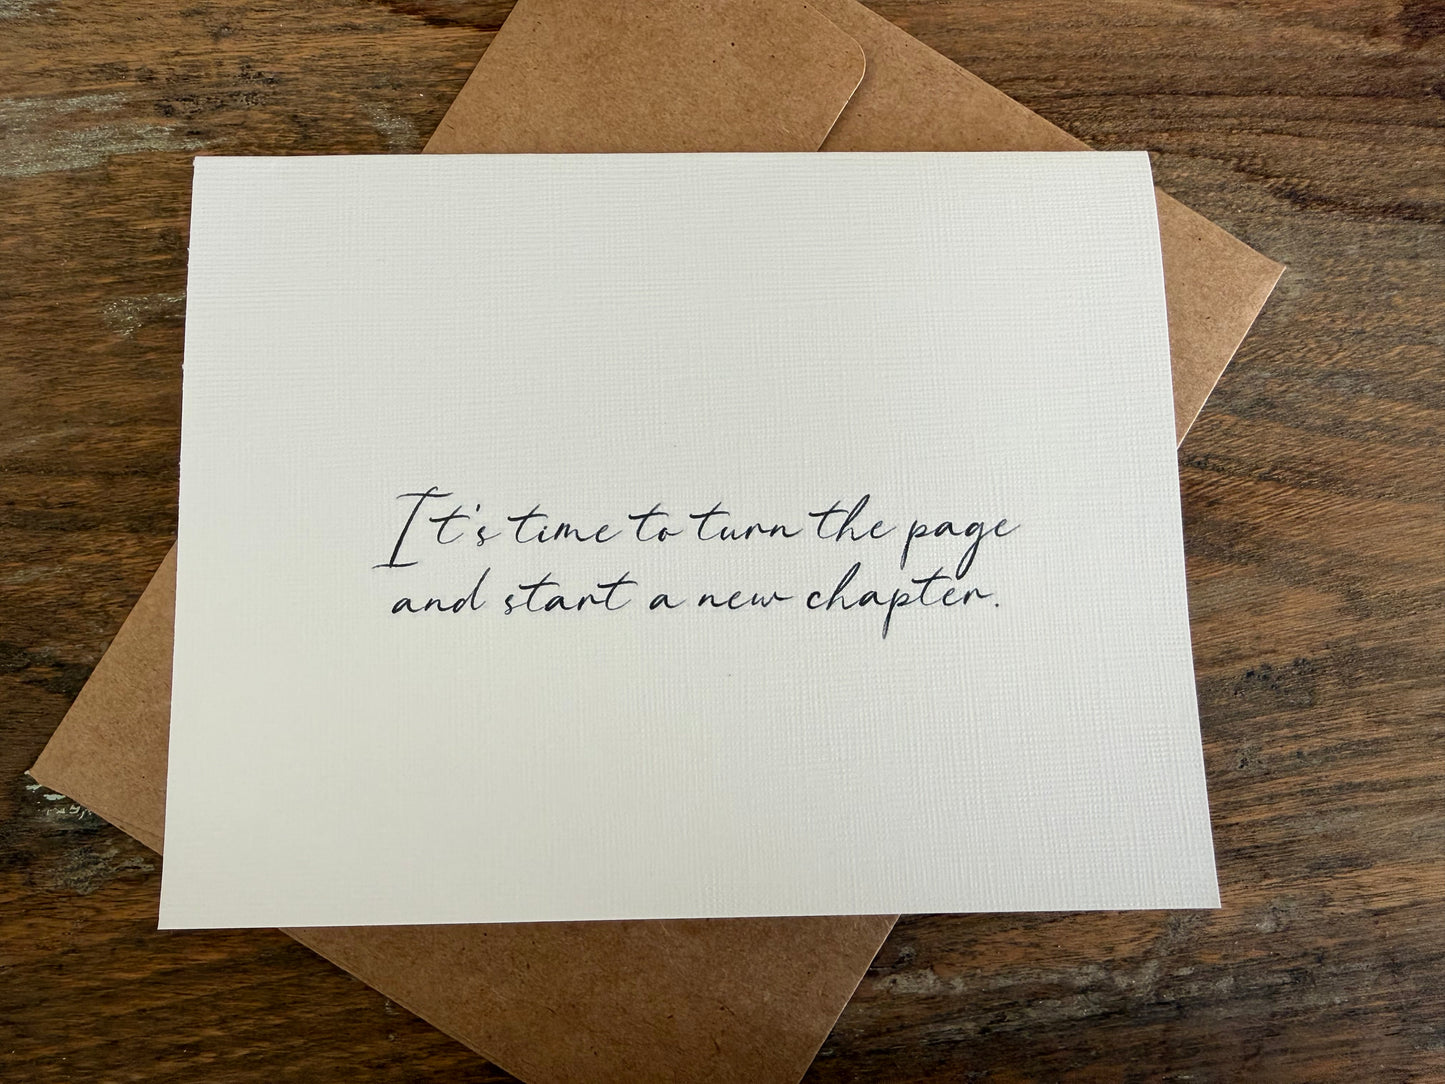 It's time to turn the page
and start a new chapter.